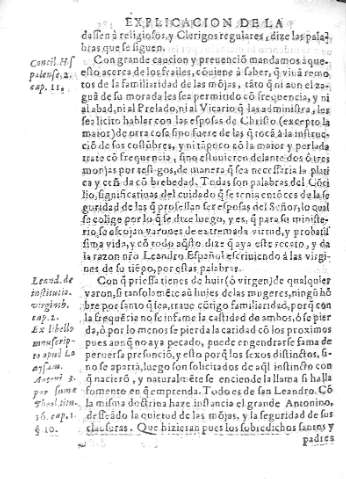 EXPLICACION DE LA
dassen à religiosos, y Clerigos regulares, dize las pala-
bras que se siguen.
Concil. His
palense. 2.
cap. 11.
Con grande caucion y prevenciõ mandamos aque-
sto, acerca de los frailes, cõviene à saber, q̃ vivã remo-
tos de la familiaridad de las mõjas, tãto q̃ ni aun el za-
guã de su morada les sea permitido cõ frequencia, y ni
al abad, ni al Prelado, ni al Vicario q̃ las administra, les
sea licito hablar con las esposas de Christo (excepto la
maior) de otra cosa sino fuere de las q̃ tocã à la instruc-
ciõ de sus costũbres, y ni tãpoco cõ la maior y perlada
trate cõ frequencia, sino estuvieren delante dos ò tres
monjas por testigos, de manera q̃ sea necessaria la platica
y esta cõ brebedad. Todas son palabras del Cõci-
lio, significativas del cuidado q̃ se tenia entõces de la se
guridad de las q̃ professan ser esposas del Señor, lo qual
se colige por lo q̃ se dize luego, y es, q̃ para su ministe-
rio, se escojan varones de extremada virtud, y probati-
sima vida, y cõ todo aq̃sto, dize q̃ aya este recato, y da
la razon nřo Leandro Español escriviendo à las virgi-
nes de su tiẽpo, por estas palabras.
Leand. de
institutio.
virginib.
cap. 2.
Ex libello
manuscrip-
to apud Lo
aysam.
Con q̃ priessa tienes de huir (ò virgen) de qualquier
varon, si tan solomẽte aũ huies de las mugeres, ningũ hõ
bre por santo q̃ sea, trate cõtigo familiaridad, porq̃ con
la frequẽtia no se infame la castidad de ambos, ò se pier
da, ò por lo menos se pierda la caridad cõ los proximos
pues aunq̃ no aya pecado, puede engendrarse fama de
perversa presunciõ, y esto porq̃ los sexos distinctos, si-
no se apartã, luego son solicitados de aq̃l instincto con
q̃ nacierõ, y naturalmẽte se enciende la llama si halla
fomento en q̃ emprenda. Todo es de san Leandro. Cõ
la misma doctrina haze instancia el grande Antonino,
desseãdo la quietud de las mõjas, y la seguridad de sus
clausuras. Que hizieran pues los sobredichos santos y
3. par. summæ
Theol. titu.
16. cap. 1.
§ 10.
padres